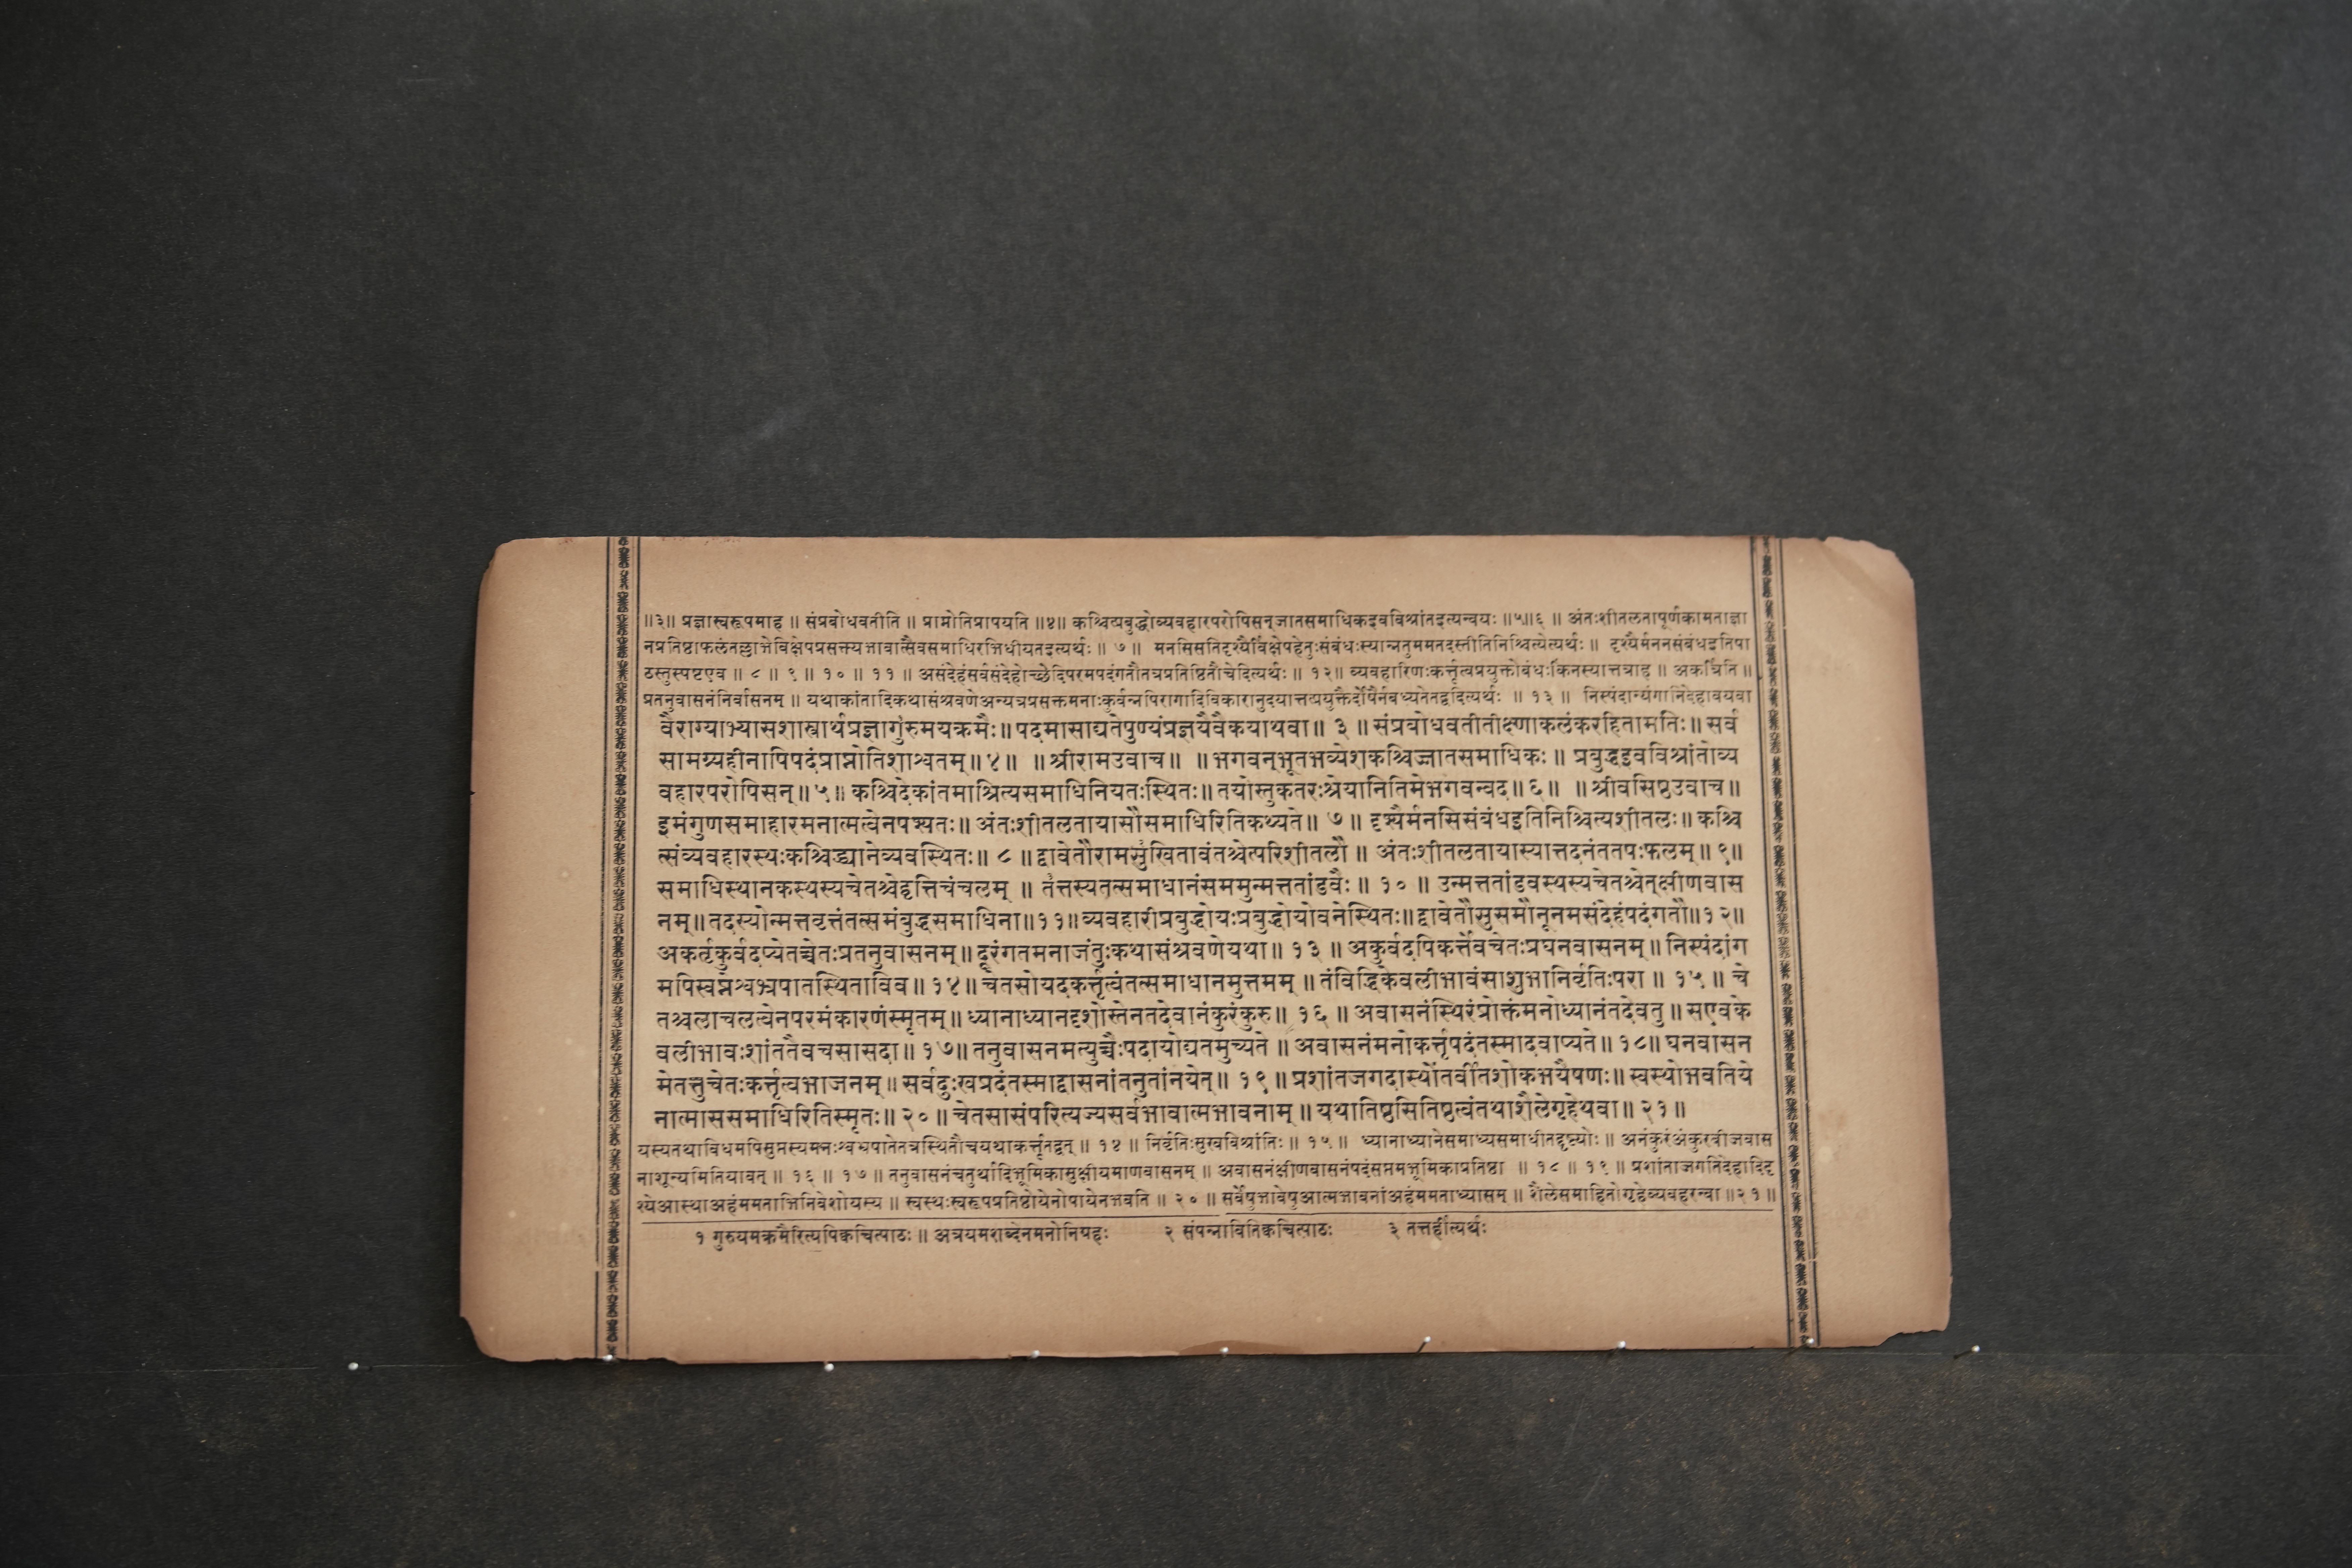 ॥३॥ प्रज्ञास्वरूपमाह ॥ संप्रबोधवतीति ॥ प्राप्नोतिप्रापयति ॥४॥ कश्चित्प्रबुद्धोव्यवहारपरोपिसन्जातसमाधिकइवविश्रांतइत्यन्वयः ॥५॥६॥ अंतःशीतलतापूर्णकामताज्ञा
नप्रतिष्ठाफलंतल्लाभेविक्षेपप्रसक्त्यभावात्सैवसमाधिरभिधीयतइत्यर्थः ॥ ७ ॥ मनसिसतिदृश्यैर्विक्षेपहेतुःसंबंधःस्यान्नतुममतदस्तीतिनिश्चित्येत्यर्थः ॥ दृश्यैर्मननसंबंधइतिपा
ठस्तुस्पष्टएव ॥ ८ ॥ ९ ॥ १० ॥ ११ ॥ असंदेहंसर्वसंदेहोच्छेदिपरमपदंगतौतत्रप्रतिष्ठितौचेदित्यर्थः ॥ १२॥ व्यवहारिणःकर्त्तृत्वप्रयुक्तोबंधःकिंनस्यात्तत्राह ॥ अकर्त्रिति ॥
प्रतनुवासनंनिर्वासनम् ॥ यथाकांतादिकथासंश्रवणेअन्यत्रप्रसक्तमनाःकुर्वन्नपिरागादिविकारानुदयात्तत्प्रयुक्तैर्दोषैर्नबध्यतेतद्वदित्यर्थः ॥ १३ ॥ निस्पंदान्यंगानिदेहावयवा
वैराग्याभ्यासशास्त्रार्थप्रज्ञागुरुमयक्रमैः॥पदमासाद्यतेपुण्यंप्रज्ञयैवैकयाथवा॥ ३ ॥ संप्रबोधवतीतीक्ष्णाकलंकरहितामतिः॥ सर्व
सामग्र्यहीनापिपदंप्राप्नोतिशाश्वतम्॥४॥ ॥श्रीरामउवाच॥ ॥भगवन्भूतभव्येशकश्चिज्जातसमाधिकः॥ प्रबुद्धइवविश्रांतोव्य
वहारपरोपिसन्॥५॥ कश्चिदेकांतमाश्रित्यसमाधिनियतःस्थितः॥तयोस्तुकतरःश्रेयानितिमेभगवन्वद॥६॥ ॥श्रीवसिष्ठउवाच॥
इमंगुणसमाहारमनात्मत्वेनपश्यतः॥ अंतःशीतलतायासौसमाधिरितिकथ्यते॥ ७॥ दृश्यैर्मनसिसंबंधइतिनिश्चित्यशीतलः॥ कश्चि
त्संव्यवहारस्थःकश्चिद्ध्यानेव्यवस्थितः॥ ८ ॥द्वावेतौरामसुखितावंतश्चेत्परिशीतलौ॥ अंतःशीतलतायास्यात्तदनंततपःफलम्॥९॥
समाधिस्थानकस्थस्यचेतश्चेद्वृत्तिचंचलम् ॥ तत्तस्यतत्समाधानंसममुन्मत्ततांडवैः॥ १० ॥ उन्मत्ततांडवस्थस्यचेतश्चेत्क्षीणवास
नम्॥तदस्योन्मत्तवृत्तंतत्समंबुद्धसमाधिना॥११॥व्यवहारीप्रबुद्धोयःप्रबुद्धोयोवनेस्थितः॥द्वावेतौसुसमौनूनमसंदेहंपदंगतौ॥१२॥
अकर्तृकुर्वदप्येतच्चेतःप्रतनुवासनम्॥दूरंगतमनाजंतुःकथासंश्रवणेयथा॥ १३ ॥ अकुर्वदपिकर्त्तेवचेतःप्रघनवासनम्॥निस्पंदांग
मपिस्वप्नेश्वभ्रपातस्थिताविव॥१४॥चेतसोयदकर्त्तृत्वंतत्समाधानमुत्तमम्॥तंविद्धिकेवलीभावंसाशुभानिर्वृतिःपरा॥ १५॥ चे
तश्चलाचलत्वेनपरमंकारणंस्मृतम्॥ध्यानाध्यानदृशोस्तेनतदेवानंकुरंकुरु॥ १६ ॥ अवासनंस्थिरंप्रोक्तंमनोध्यानंतदेवतु॥सएवके
वलीभावःशांततैवचसासदा॥१७॥तनुवासनमत्युच्चैःपदायोद्यतमुच्यते॥अवासनंमनोकर्त्तृपदंतस्मादवाप्यते॥१८॥ घनवासन
मेतत्तुचेतःकर्त्तृत्वभाजनम्॥सर्वदुःखप्रदंतस्माद्वासनांतनुतांनयेत्॥ १९॥प्रशांतजगदास्थोंतर्वीतशोकभयैषणः॥स्वस्थोभवतिये
नात्माससमाधिरितिस्मृतः॥२०॥चेतसासंपरित्यज्यसर्वभावात्मभावनाम्॥यथातिष्ठसितिष्ठत्वंतथाशैलेगृहेथवा॥२१॥
यस्यतथाविधमपिसुप्तस्यमनःश्वभ्रपातेतत्रस्थितौचयथाकर्त्तृतद्वत् ॥ १४ ॥ निर्वृतिःसुखविश्रांतिः ॥ १५ ॥ ध्यानाध्यानेसमाध्यसमाधीतद्दृष्ट्योः ॥ अनंकुरंअंकुरबीजवास
नाशून्यमितियावत् ॥ १६ ॥ १७ ॥ तनुवासनंचतुर्थादिभूमिकासुक्षीयमाणवासनम् ॥ अवासनंक्षीणवासनंपदंसप्तमभूमिकाप्रतिष्ठा ॥ १८ ॥ १९ ॥ प्रशांताजगतिदेहादिदृ
श्येआस्थाअहंममताभिनिवेशोयस्य ॥ स्वस्थःस्वरूपप्रतिष्ठोयेनोपायेनभवति ॥ २० ॥ सर्वेषुभावेषुआत्मभावनांअहंममताध्यासम् ॥ शैलेसमाहितोगृहेव्यवहरन्वा॥२१॥
१ गुरुयमक्रमैरित्यपिक्वचित्पाठः॥ अत्रयमशब्देनमनोनिग्रहः २ संपन्नावितिक्वचित्पाठः ३ तत्तर्हीत्यर्थः